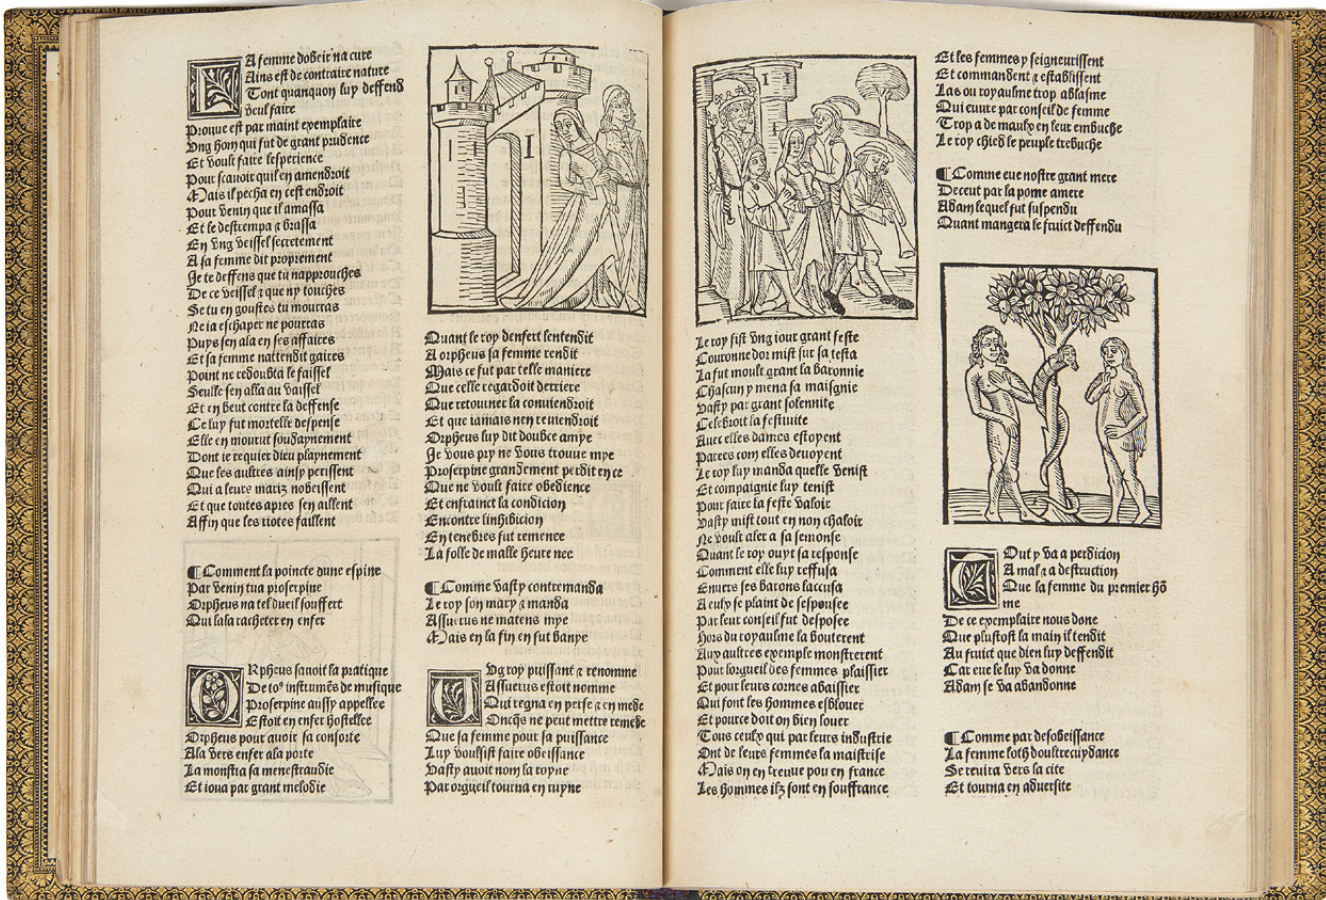 LA femme dobeir na cure
Ains est de contraire nature
Tout quanquon luy deffend
veul faire
Prouue est par maint exemplaire
Vng hom qui fut de grant prudence
Et voult faire lesperience
Pour scauoit quil en amendroit
Mais il pecha en cest endroit
Pour venin que il amassa
Et le destrempa ⁊ brassa
En vng veissel secretement
A sa femme dit proprement
Je te deffens que tu napprouches
De ce veissel ⁊ que ny touches
Se tu en goustes tu mourras
Ne ia eschaper ne pourras
Puys sen ala en ses affaires
Et sa femme nattendit gaires
Point ne redoubta le faissel
Seulle sen alla au vaissel
Et en beut contre la deffense
Ce luy fut mortelle despense
Elle en mourut soudaynement
Dont ie requier dieu playnement
Que les aultres ainsy perissent
Qui a leurs mariz nobeissent
Et que toutes apres sen aillent
Affin que les riotes faillent
¶ Comment la poincte dune espine
Par venin tua proserpine
Orpheus na tel dueil souffert
Qui lala racheter en enfer
ORpheus sauoit la pratique
De toꝰ instrumēs de musique
Proserpine aussy appellee
Estoit en enfer hostellee
Orpheus pour auoir sa consorte
Ala vers enfer a la porte
La monstra sa menestraudie
Et ioua par grant melodie
Quant le roy denfert lentendit
A orpheus sa femme rendit
Mais ce fut par telle maniere
Que celle regardoit derriere
Que retourner la conuiendroit
Et que iamais nen reuiendroit
Orpheus luy dit doubce amye
Je vous pry ne vous trouue mye
Proserpine grandement perdit en ce
Que ne voult faire obedience
Et enfraint la condicion
Encontre linhibicion
En tenebres fut remenee
La folle de malle heure nee
¶ Comme vasty contremanda
Le roy son mary ⁊ manda
Assuerus ne matens mye
Mais en la fin en fut banye
Vng roy puissant ⁊ renomme
Assuerus estoit nomme
Qui regna en perse ⁊ en mede
Oncq̄s ne peut mettre remede
Que sa femme pour sa puissance
Luy voulsist faire obeissance
Vasty auoit nom la royne
Par orgueil tourna en ruyne
Le roy fist vng iour grant feste
Couronne dor mist sur sa testa
La fut moult grant la baronnie
Chascun y mena sa maignie
Vasty par grant solennite
Celebroit la festiuite
Auec elles dames estoyent
Parees com elles deuoyent
Le roy luy manda quelle venist
Et compaignie luy tenist
Pour faire la feste valoir
Vasty mist tout en non chaloir
Ne voult aler a sa semonse
Quant le roy ouyt sa response
Comment elle luy reffusa
Enuers ses barons laccusa
A eulx se plaint de sespousee
Par leur conseil fut desposee
Hors du royaulme la bouterent
Aux aultres exemple monstrerent
Pour lorgueil des femmes plaissier
Et pour leurs cornes abaissier
Qui font les hommes esblouer
Et pource doit on bien louer
Tous ceulx qui par leurs industrie
Ont de leurs femmes la maistrise
Mais on en treuue pou en france
Les hommes ilz sont en souffrance
Et les femmes y seigneurissent
Et commandent ⁊ establissent
Las ou royaulme trop ablasme
Qui euure par conseil de femme
Trop a de maulx en leur embuche
Le roy chied le peuple trebuche
¶ Comme eue nostre grant mere
Deceut par la pome amere
Adam lequel fut suspendu
Quant mangera le fruict deffendu
TOut y va a perdicion
A mal ⁊ a destruction
Que la femme du premier hō
me
De ce exemplaire nous done
Que plustost la main il tendit
Au fruict que dieu luy deffendit
Car eue le luy va donne
Adam se va abandonne
¶ Comme par desobeissance
La femme loth doultrecuydance
Se reuira vers la cite
Et tourna en aduersite